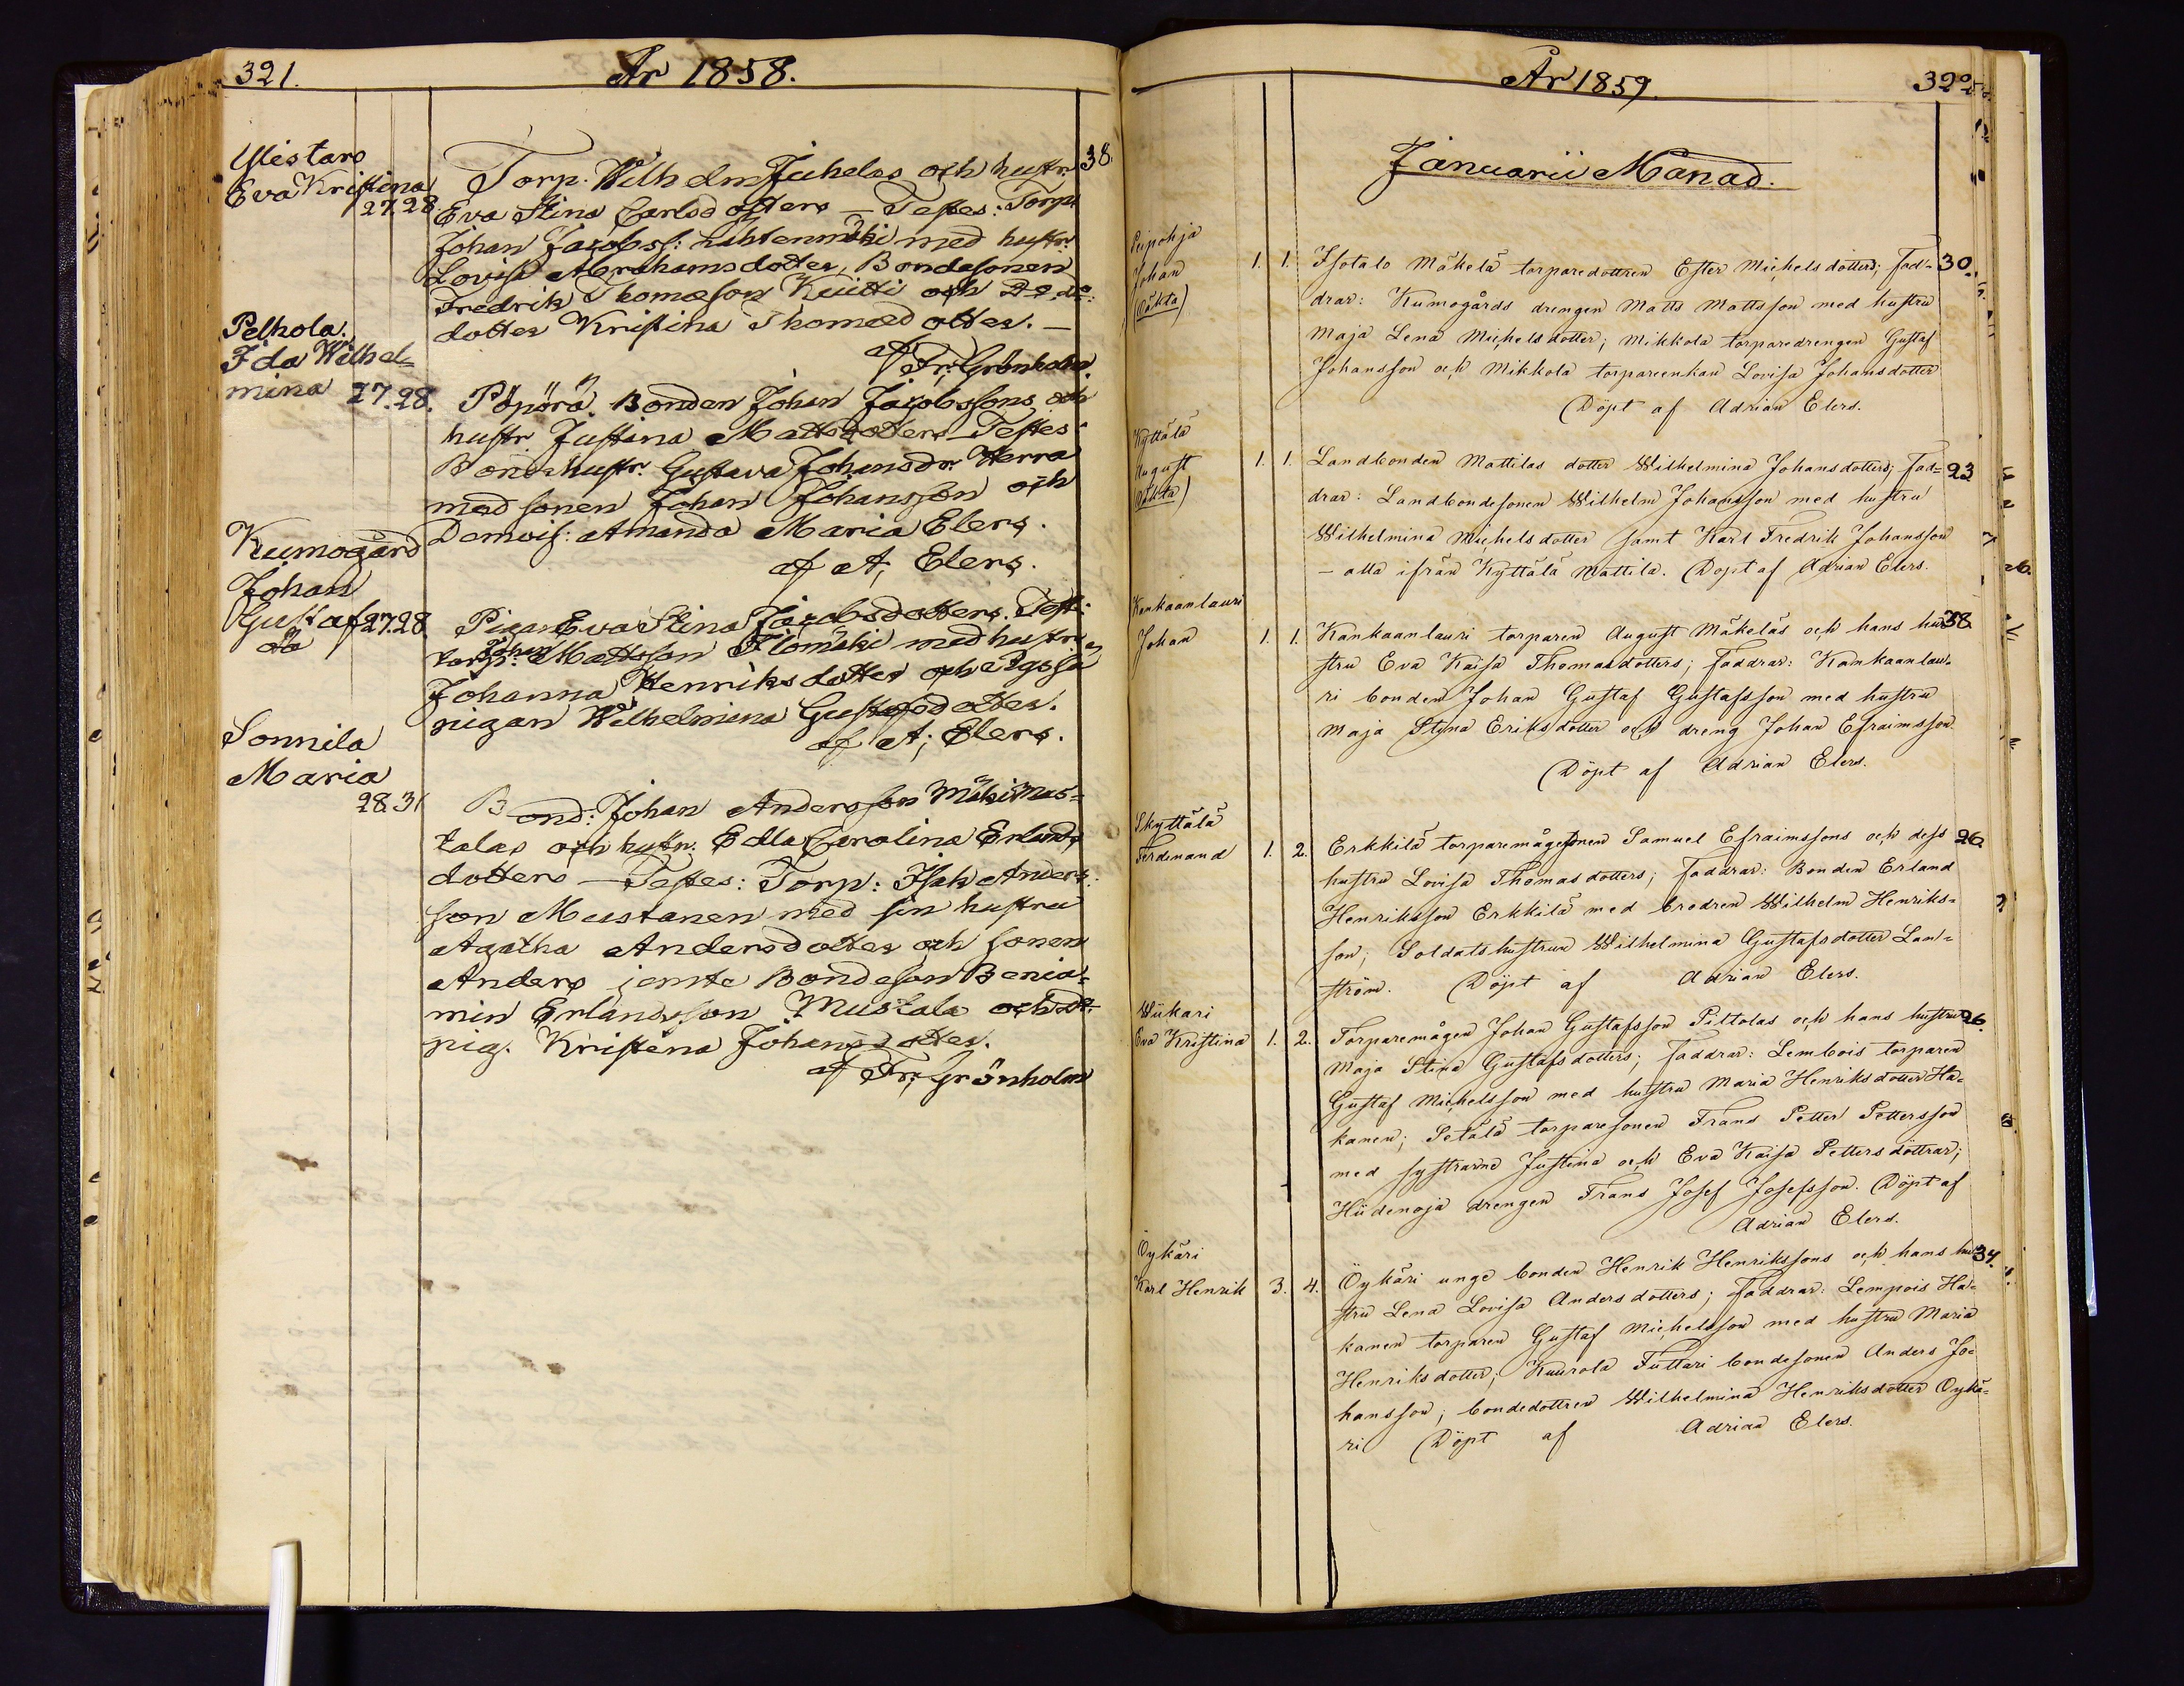 321.
År 1858.
Ylistaro
Eva Kristina
27. 28.
Torp. Wilhelm Juhelas och hustr. 38.
Eva Stina Carlsdotters — Testes: Torp.
Johan Jacobss: Lähtenmäki med hustr.
Lovisa Abrahamsdotter, Bondesonen
Fredrik Thomason Kuitti och
dotter Kristina Thomædotter. —
af Fr. Grönholm.
Pelhola.
Ida Wilhel-
mina 27. 28.
Pöpörä. Bonden Johan Jacobssons och
hustr. Justina Mattsdotters — Testes:
Bondehustr. Gustava Johansdr. Herra
med sonen Johan Johansson och
Demois: Amanda Maria Elers.
af A, Elers.
Kumogård
Johan
Gustaf 27. 28.
oä
Pigan Eva Stina Jacobsdotters. Test:
torp: Johan Mattsson Ilomäki med hustru
Johanna Henriksdotter och
pigan Wilhelmina Gustafsdotter.
af A, Elers.
Sonnila
Maria
28. 31
Bond: Johan Andersson Mäki Mus-
talas och hustr. Edla Carolina Erlands
dotters — Testes: Torp: Isak Anders
son Mustanen med sin hustru
Agatha Andersdotter och sonen
Anders jemte Bondeson Benja-
min Erlandsson Mustala och
pig. Kristina Johansdotter.
af Fr. Grönholm
År 1859.
322
Januarii Månad.
Peipohja
Johan
(oäkta)
1. 1. Isotalo Mäkelä torparedottren Ester Michelsdotters; fad- 30.
drar: Kumogårds drengen Matts Mattsson med hustru
Maja Lena Michelsdotter; Mikkola torparedrengen Gustaf
Johansson och Mikkola torpareenkan Lovisa Johansdotter
Döpt af Adrian Elers.
Kyttälä
August
(oäkta)
1. 1. Landbonden Mattilas dotter Wilhelmina Johansdotters; fad- 23
drar: Landbondesonen Wilhelm Johansson med hustru
Wilhelmina Michelsdotter samt Karl Fredrik Johansson
— alla ifrån Kyttälä Mattila. Döpt af Adrian Elers.
Kankaanlauri
Johan
1. 1. Kankaanlauri torparen August Mäkeläs och hans hu- 38
stru Eva Kaisa Thomasdotters; faddrar: Kankaanlau-
ri bonden Johan Gustaf Gustafsson med hustru
Maja Stina Eriksdotter och dreng Johan Efraimsson
Döpt af Adrian Elers.
Skyttälä
Ferdinand
1. 2. Erkkilä torparemågsonen Samuel Efraimssons och dess 26
hustru Lovisa Thomasdotters; faddrar: Bonden Erland
Henriksson Erkkilä med brodren Wilhelm Henriks-
son; Soldatshustrun Wilhelmina Gustafsdotter Lan-
ström. Döpt af Adrian Elers.
Wiikari
Eva Kristina
1. 2. Torparemågen Johan Gustafsson Piltolas och hans hustru 26.
Maja Stina Gustafsdotters; faddrar: Lembois torparen
Gustaf Michelsson med hustru Maria Henriksdotter Ha-
kanen; Setälä torparesonen Frans Petter Pettersson
med systrarne Justina och Eva Kaisa Pettersdöttrar;
Hiidenoja drengen Frans Josef Josefsson. Döpt af
Adrian Elers.
Öykäri
Karl Henrik
3. 4. Öykäri unge bonden Henrik Henrikssons och hans hu- 34.
stru Lena Lovisa Andersdotters; faddrar: Lempois Ha-
kanen torparen Gustaf Michelsson med hustru Maria
Henriksdotter; Kuurola Futtari bondesonen Anders Jo-
hansson; bondedottren Wilhelmina Henriksdotter Öykä-
ri Döpt af Adrian Elers.